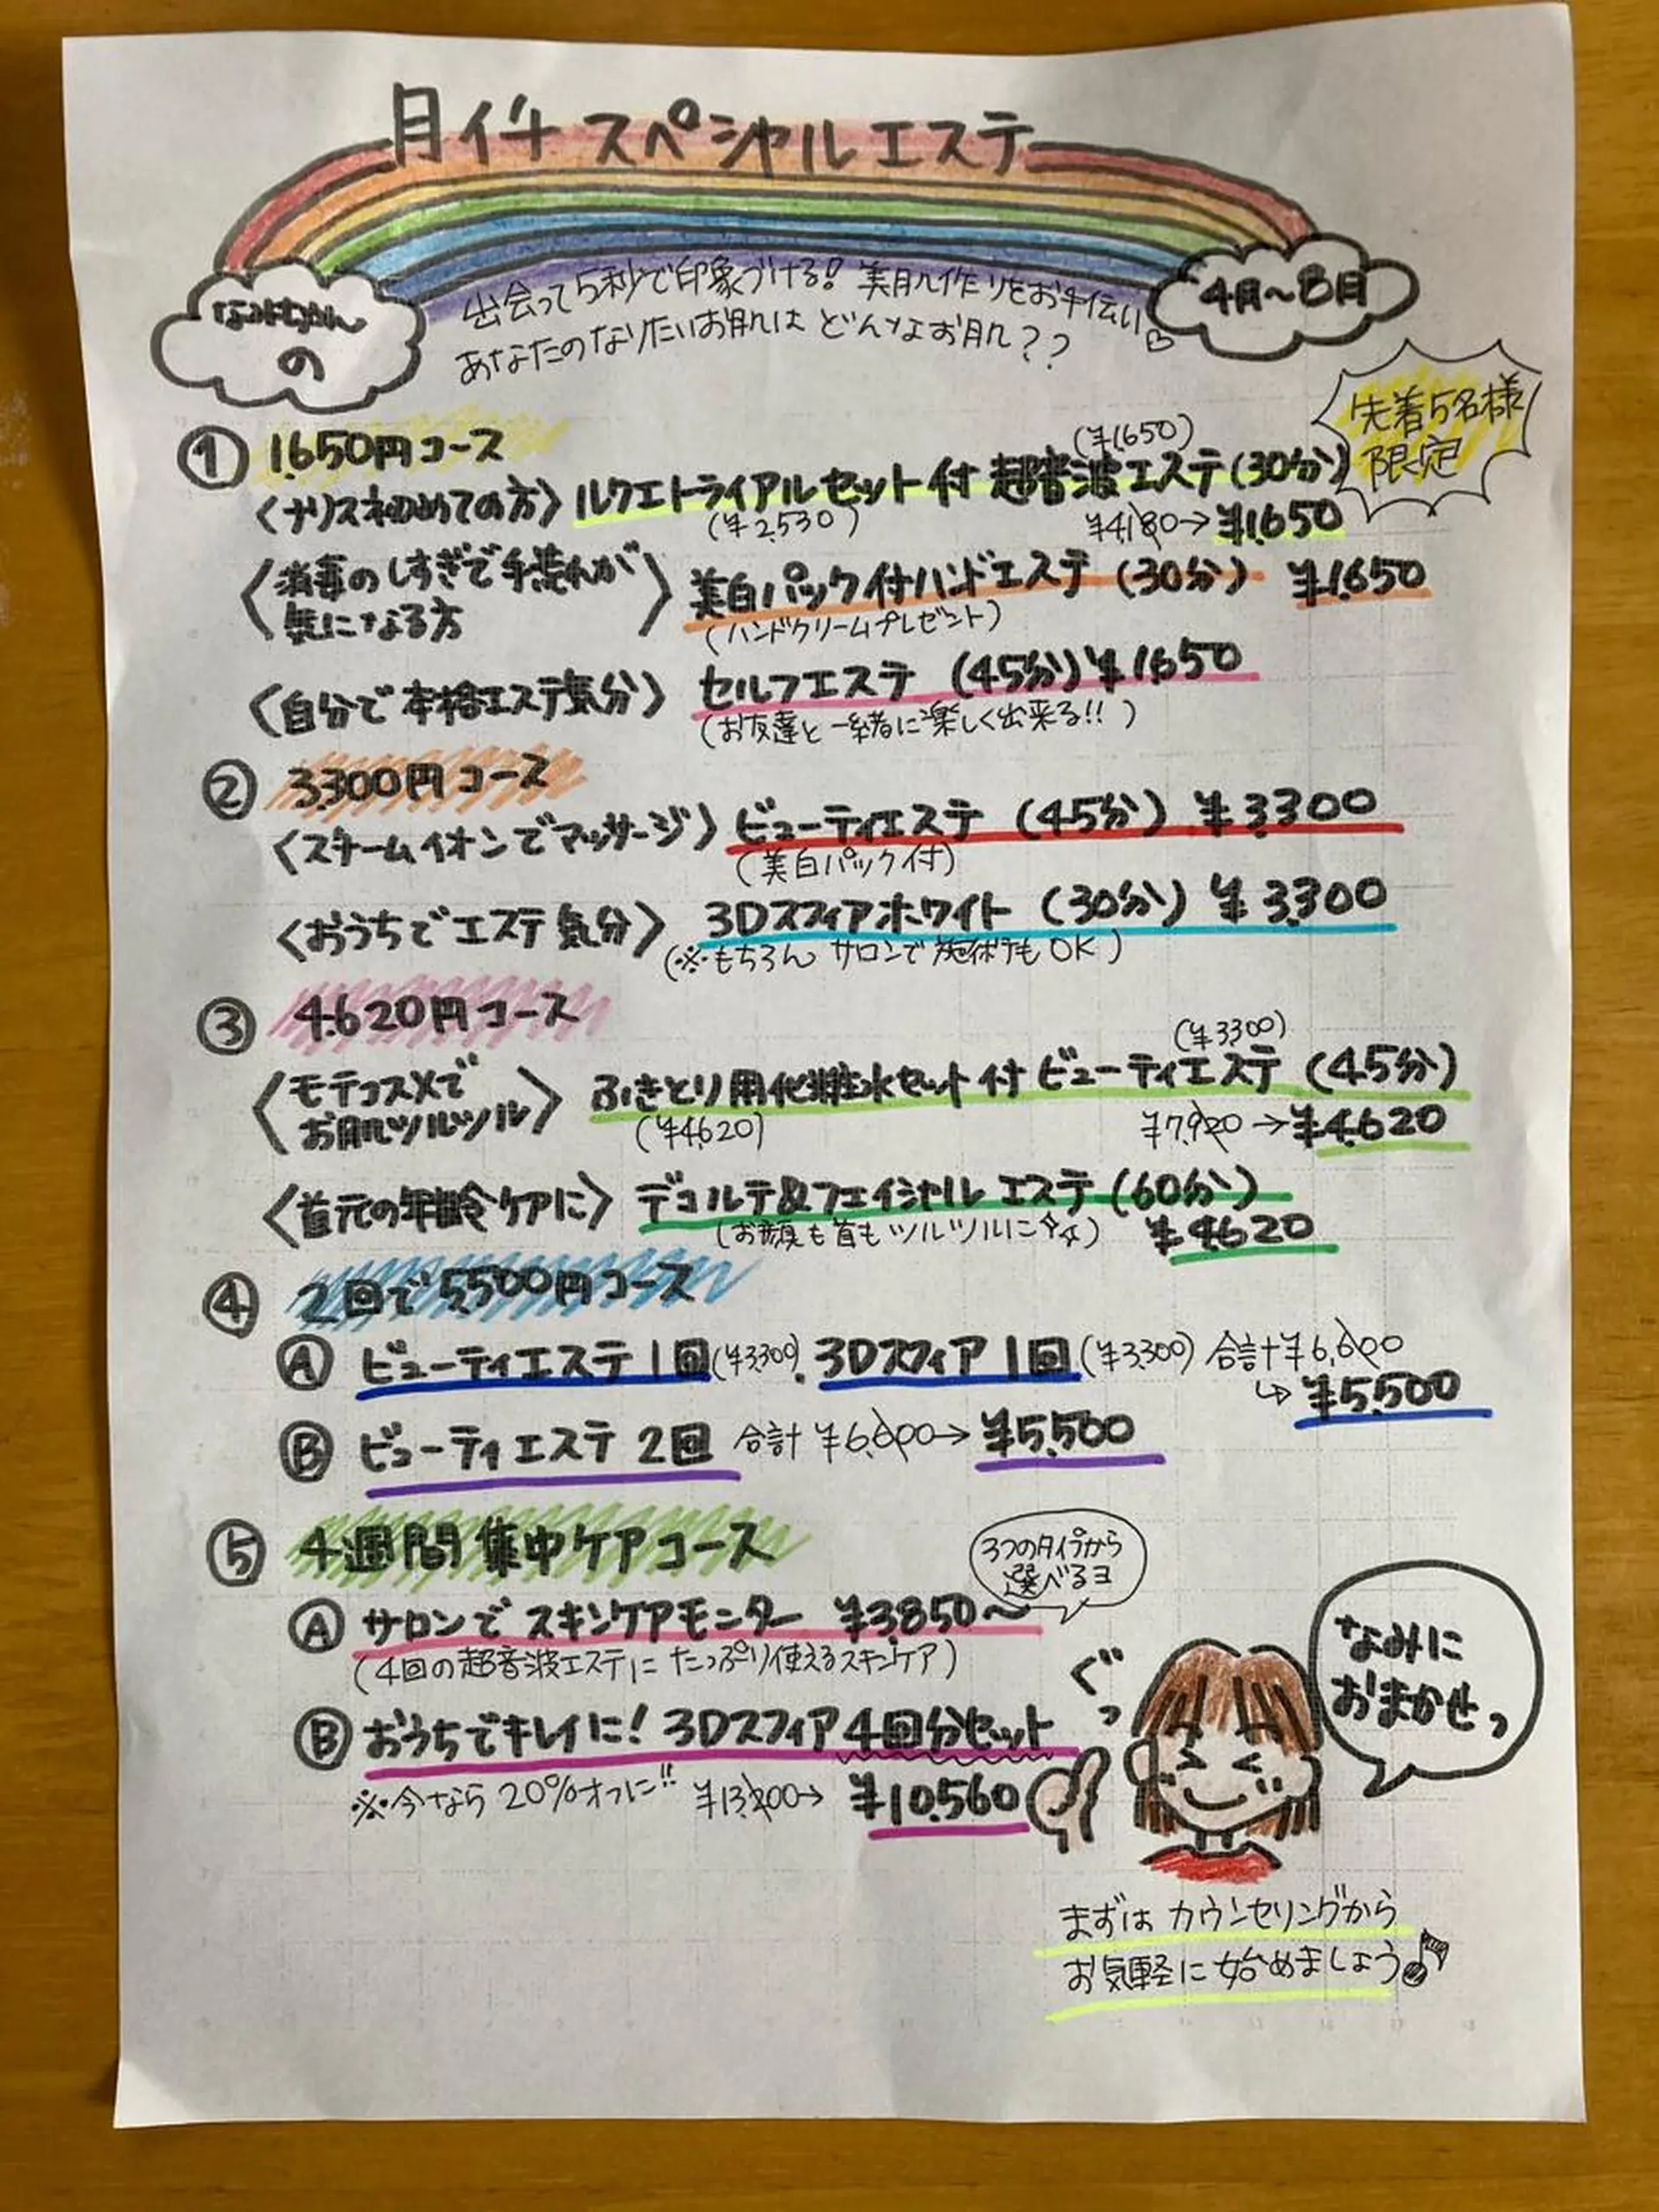 月イチスペシャルエステ
の
出会って5秒で印象づける!美肌作りをお手伝い♡
4月~8月
あなたのなりたいお肌はどんなお肌??
先着5名様
限定
① 1,650円コース
(¥1650)
〈ナリス初めての方〉ルクエトライアルセット付 超音波エステ(30分)
(¥2,530) ¥4,180→¥1,650
〈消毒のしすぎで手荒れが
気になる方〉
美白パック付ハンドエステ(30分) ¥1,650
(ハンドクリームプレゼント)
〈自分で本格エステ気分〉 セルフエステ (45分)¥1,650
(お友達と一緒に楽しく出来る!!)
② 3,300円コース
〈スチームイオンでマッサージ〉ビューティエステ(45分) ¥3,300
(美白パック付)
〈おうちでエステ気分〉 3Dスフィアホワイト(30分) ¥3,300
(※もちろん サロンで施術もOK)
③ 4,620円コース
(¥3300)
〈モテコスメで
お肌ツルツル〉
ふきとり用化粧水セット付 ビューティエステ(45分)
(¥4620) ¥7,920→¥4,620
〈首元の年齢ケアに〉 デコルテ&フェイシャルエステ(60分)
(お顔も首もツルツルに) ¥4,620
④ 2回で5,500円コース
Ⓐ ビューティエステ1回(¥3,300).3Dスフィア1回(¥3,300) 合計¥6,600
↳¥5,500
Ⓑ ビューティエステ2回 合計¥6,600→¥5,500
⑤ 4週間集中ケアコース
3つのタイプから
選べるヨ
Ⓐ サロンでスキンケアモニター ¥3,850~
(4回の超音波エステにたっぷり使えるスキンケア)
Ⓑ おうちでキレイに!3Dスフィア4回分セット
※今なら20%オフに!! ¥13,200→ ¥10,560
ぐっ
なみに
おまかせっ
まずはカウンセリングから
お気軽に始めましょう♪